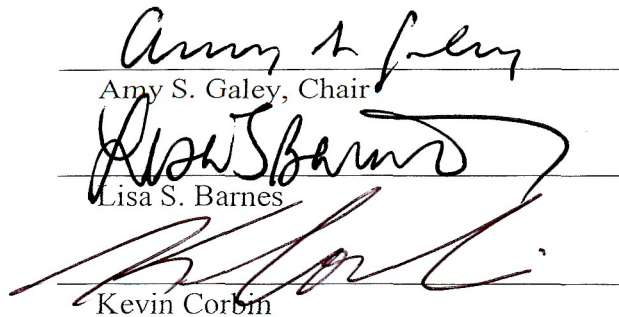 Amy S Galey
Amy S. Galey, Chair
Lisa S Barnes
Lisa S. Barnes
K Corbin
Kevin Corbin